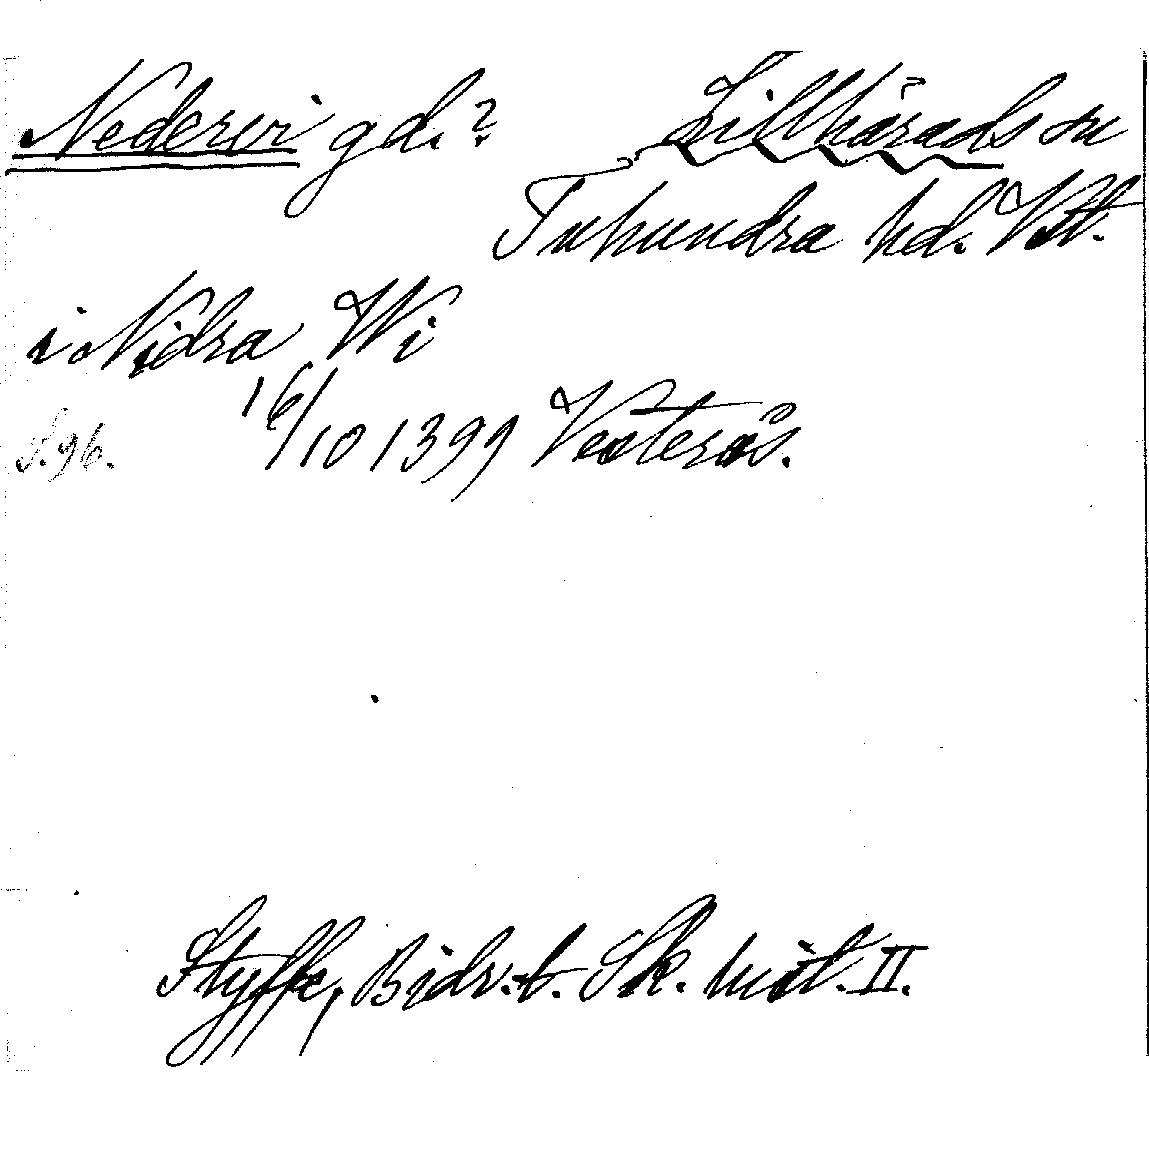 Nedervi gd.? Lillhärads sn
Tuhundra hd. Vstl.
i Nidra Wi
16/10 1399 Vesterås.
S. 96.
Styffe, Bidr. t. Sk. hist. II.